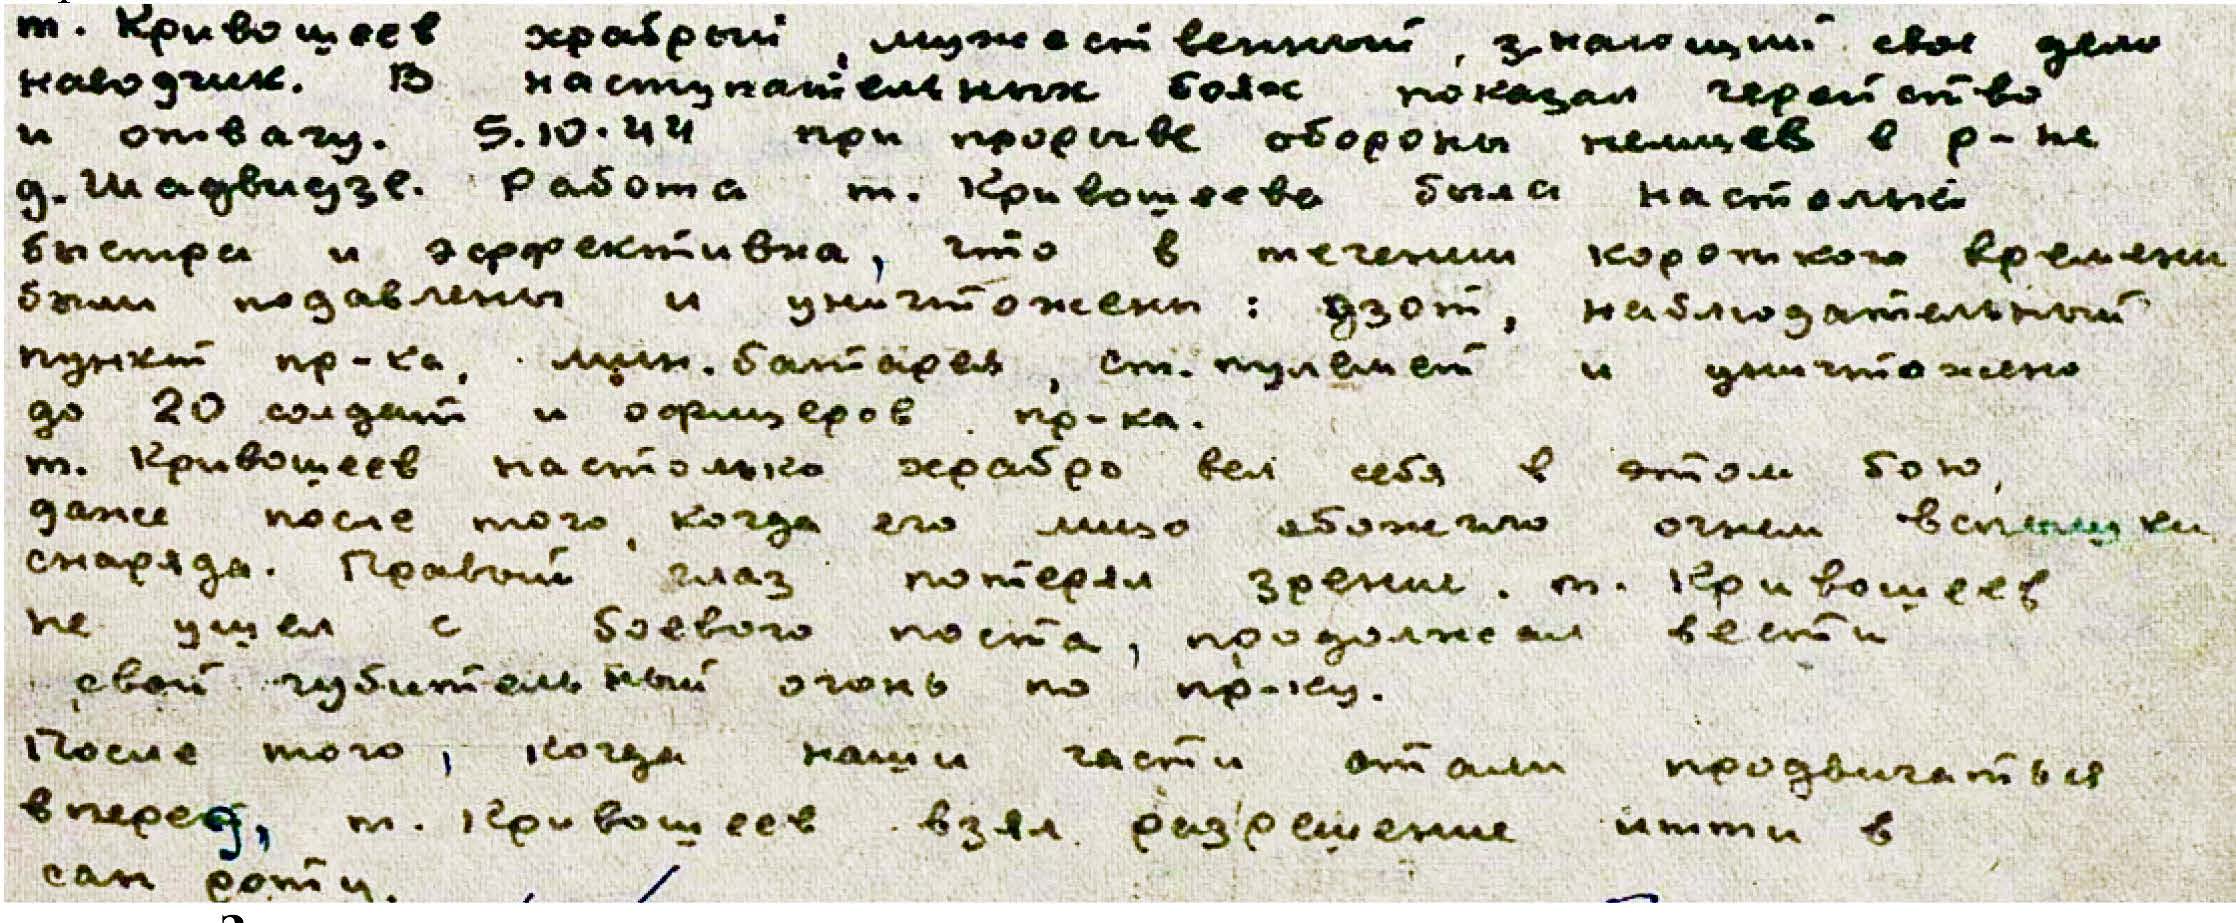 т. Кривошеев храбрый, мужественный, знающий свое дело
наводчик. В наступательных боях показал геройство
и отвагу. 5.10.44 при прорыве обороны немцев в р-не
д. Шадвидзе. Работа т. Кривошеева была настолько
быстра и эффективна, что в течении короткого времени
были подавлены и уничтожены: дзот, наблюдательный
пункт пр-ка, мин. батарея, ст. пулемет и уничтожено
до 20 солдат и офицеров пр-ка.
т. Кривошеев настолько храбро вел себя в этом бою,
даже после того, когда его лицо обожгло огнем вспышки
снаряда. Правый глаз потерял зрение. т. Кривошеев
не ушел с боевого поста, продолжал вести
свой губительный огонь по пр-ку.
После того, когда наши части стали продвигаться
вперед, т. Кривошеев взял разрешение итти в
сан роту.